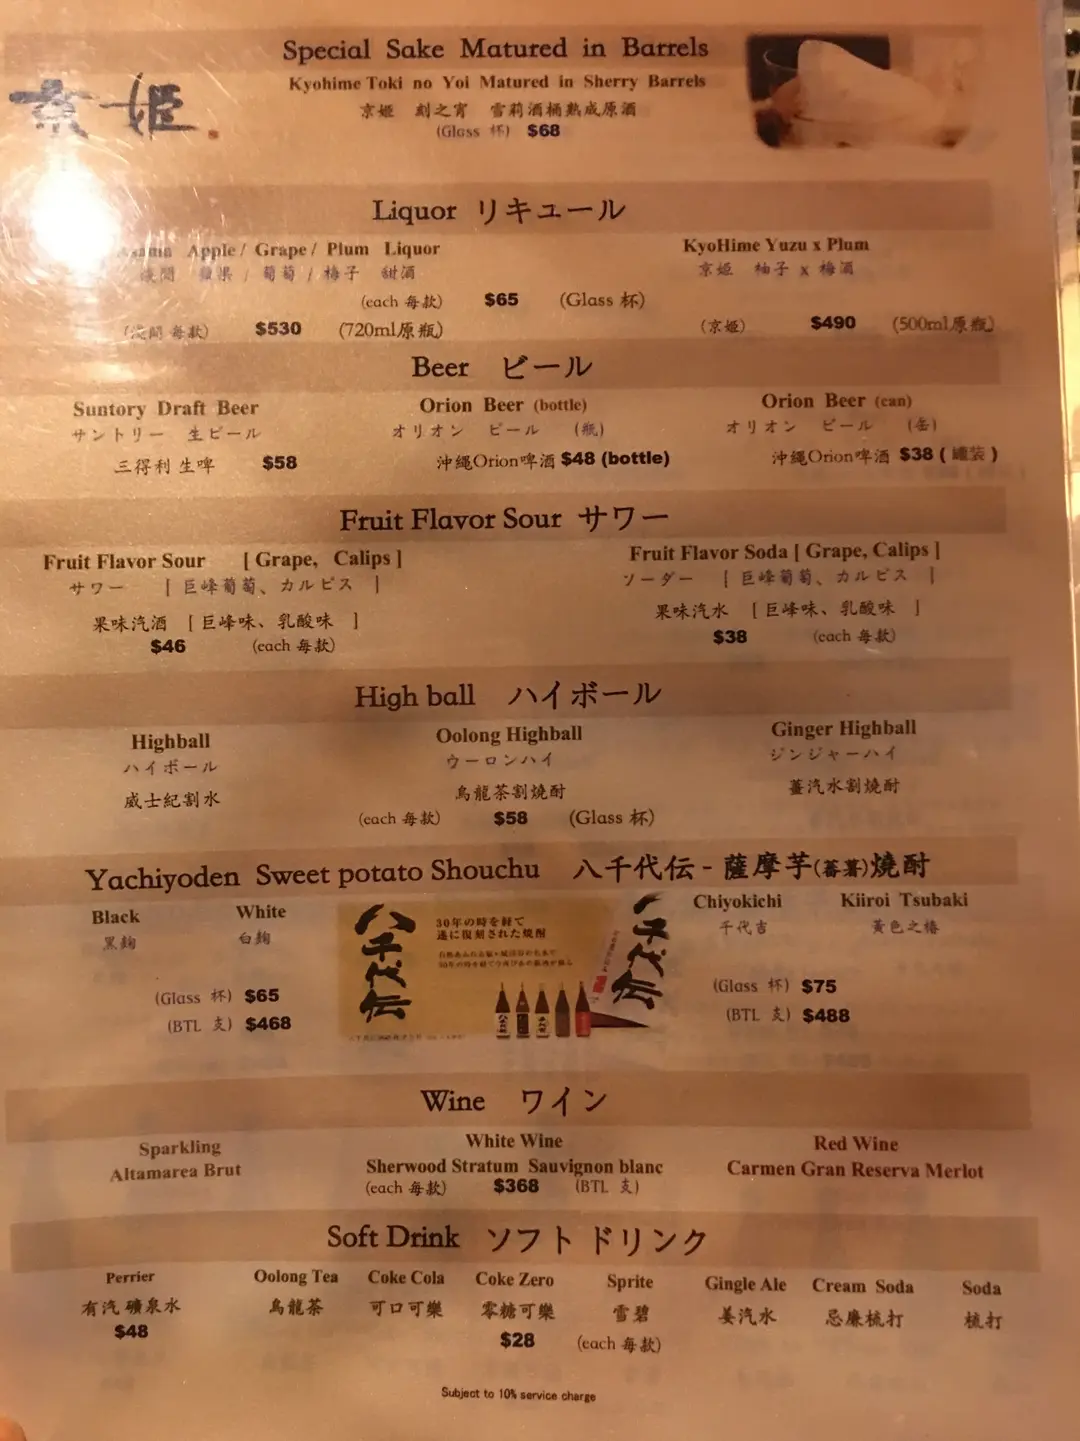 Special Sake Matured in Barrels
京姬
Kyohime Toki no Yoi Matured in Sherry Barrels
京姬 刻之宵 雪莉酒桶熟成原酒
(Glass 杯) $68
Liquor リキュール
Apple / Grape / Plum Liquor
蘋果 / 葡萄 / 梅子 甜酒
KyoHime Yuzu x Plum
京姬 柚子 x 梅酒
(each 每款) $65 (Glass 杯)
(淺間 每款) $530 (720ml原瓶)
(京姬) $490 (500ml原瓶)
Beer ビール
Suntory Draft Beer
サントリー 生ビール
三得利 生啤 $58
Orion Beer (bottle)
オリオン ビール (瓶)
沖縄Orion啤酒 $48 (bottle)
Orion Beer (can)
オリオン ビール (缶)
沖縄Orion啤酒 $38 ( 罐装 )
Fruit Flavor Sour サワー
Fruit Flavor Sour [ Grape, Calips ]
サワー [ 巨峰葡萄、カルピス ]
果味汽酒 [ 巨峰味、乳酸味 ]
$46 (each 每款)
Fruit Flavor Soda [ Grape, Calips ]
ソーダー [ 巨峰葡萄、カルピス ]
果味汽水 [ 巨峰味、乳酸味 ]
$38 (each 每款)
High ball ハイボール
Highball
ハイボール
威士紀割水
Oolong Highball
ウーロンハイ
烏龍茶割燒酎
Ginger Highball
ジンジャーハイ
薑汽水割燒酎
(each 每款) $58 (Glass 杯)
Yachiyoden Sweet potato Shouchu 八千代伝 - 薩摩芋(蕃薯)燒酎
Black
黒麹
White
白麹
(Glass 杯) $65
(BTL 支) $468
八千代伝
30年の時を経て
遂に復刻された焼酎
八千代伝
Chiyokichi
千代吉
Kiiroi Tsubaki
黃色之椿
(Glass 杯) $75
(BTL 支) $488
Wine ワイン
Sparkling
Altamarea Brut
White Wine
Sherwood Stratum Sauvignon blanc
Red Wine
Carmen Gran Reserva Merlot
(each 每款) $368 (BTL 支)
Soft Drink ソフトドリンク
Perrier
有汽礦泉水
$48
Oolong Tea
烏龍茶
Coke Cola
可口可樂
Coke Zero
零糖可樂
Sprite
雪碧
Gingle Ale
姜汽水
Cream Soda
忌廉梳打
Soda
梳打
$28 (each 每款)
Subject to 10% service charge